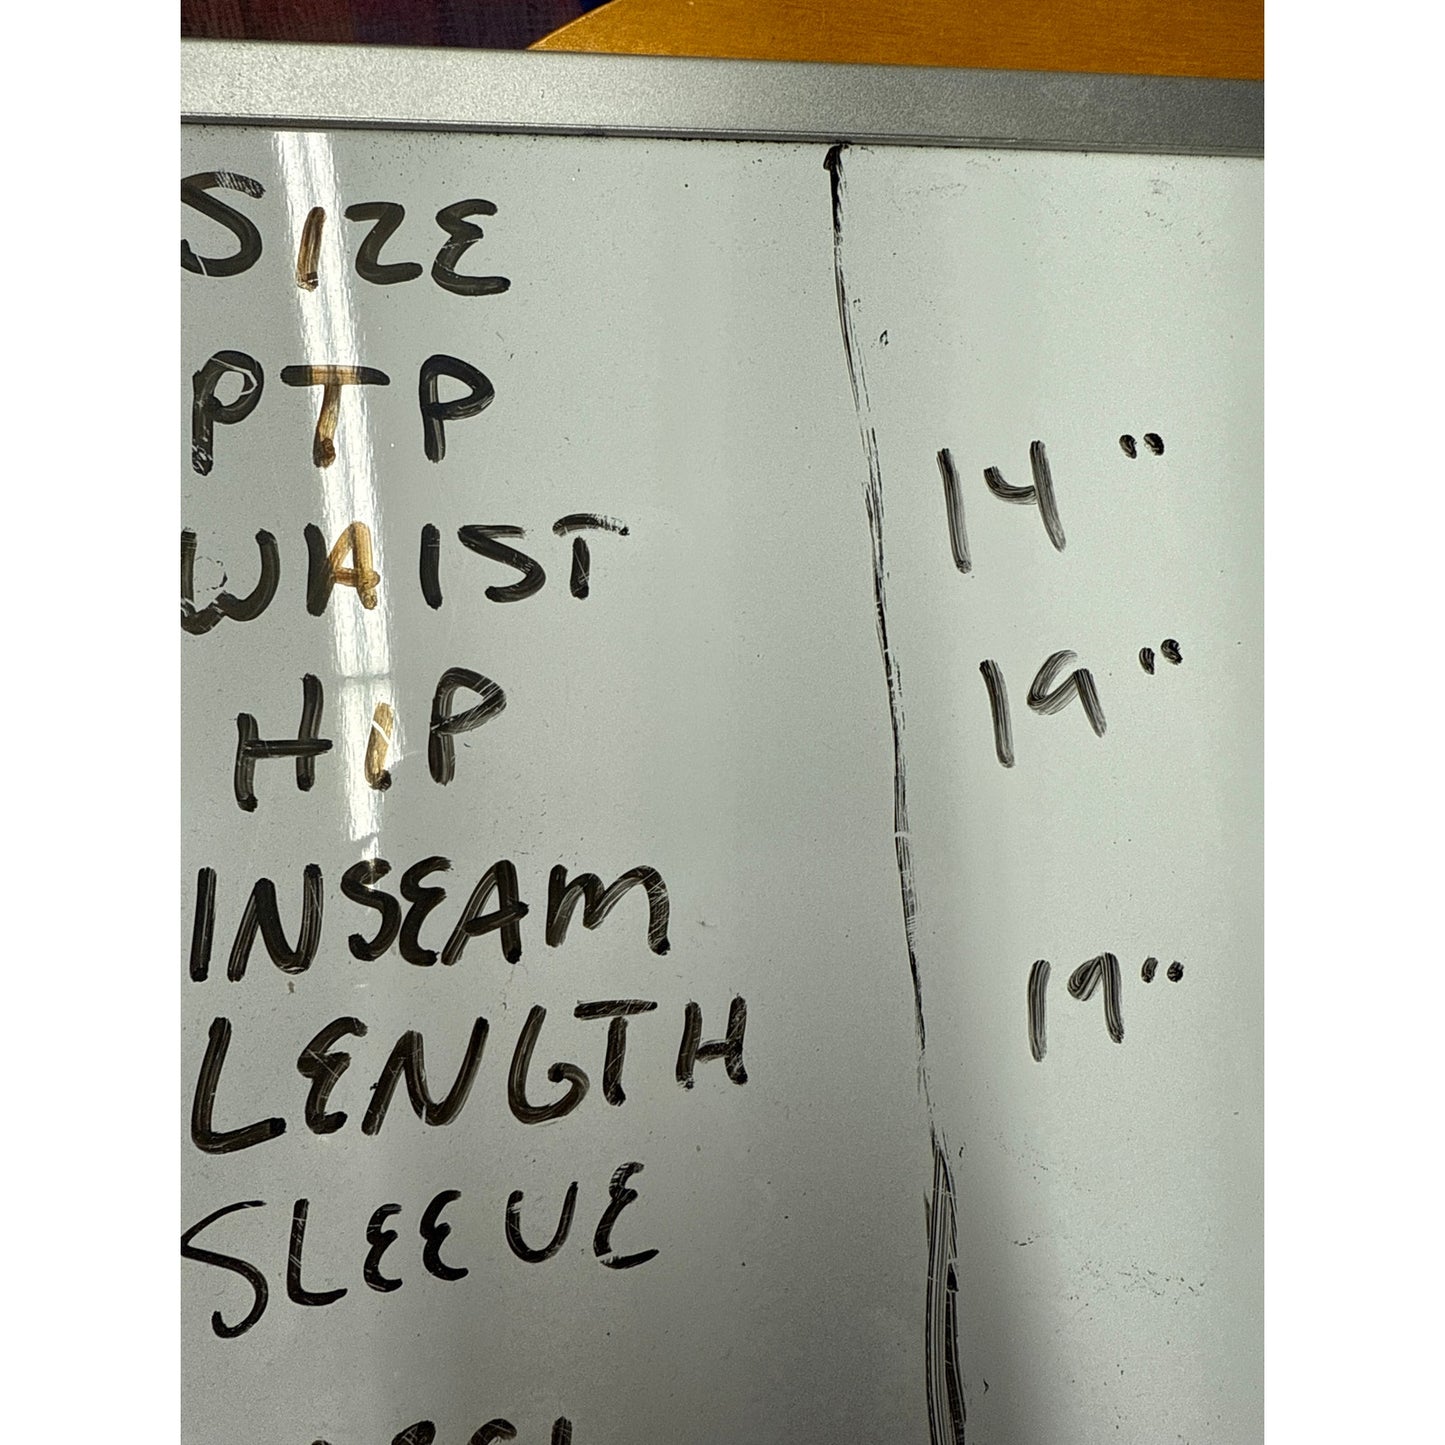 SIZE
PTP
WAIST 14"
HIP 19"
INSEAM
LENGTH 19"
SLEEVE